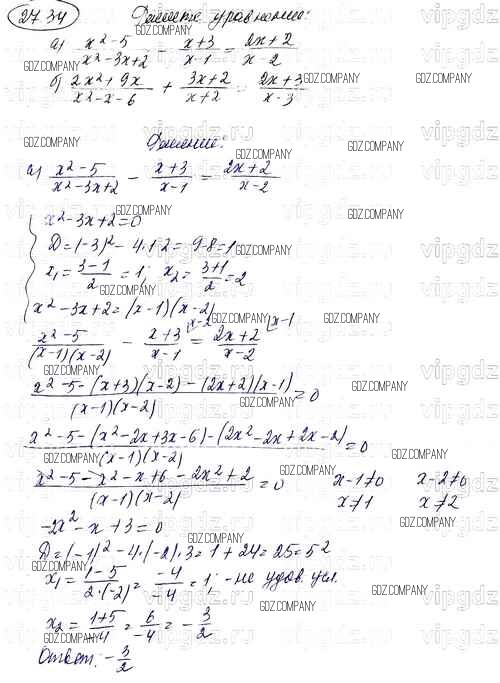 27.34 Решите уравнение:
а) x²-5/x²-3x+2 - x+3/x-1 = 2x+2/x-2
б) 2x²+9x/x²-x-6 + 3x+2/x+2 = 2x+3/x-3
Решение:
а) x²-5/x²-3x+2 - x+3/x-1 = 2x+2/x-2
x²-3x+2=0
D=(-3)²-4·1·2=9-8=1
x₁=3-1/2=1; x₂=3+1/2=2
x²-3x+2=(x-1)(x-2)
x²-5/(x-1)(x-2) - x+3/x-1 |x-2 = 2x+2/x-2 |x-1
x²-5-(x+3)(x-2)-(2x+2)(x-1)/(x-1)(x-2)=0
x²-5-(x²-2x+3x-6)-(2x²-2x+2x-2)/(x-1)(x-2)=0
x²-5-x²-x+6-2x²+2/(x-1)(x-2)=0 x-1≠0 x-2≠0
x≠1 x≠2
-2x²-x+3=0
D=(-1)²-4·(-2)·3=1+24=25=5²
x₁=1-5/2·(-2)=-4/-4=1; - не удов. усл.
x₂=1+5/-4=6/-4=-3/2
Ответ: -3/2
GDZ.COMPANY
vipgdz.ru